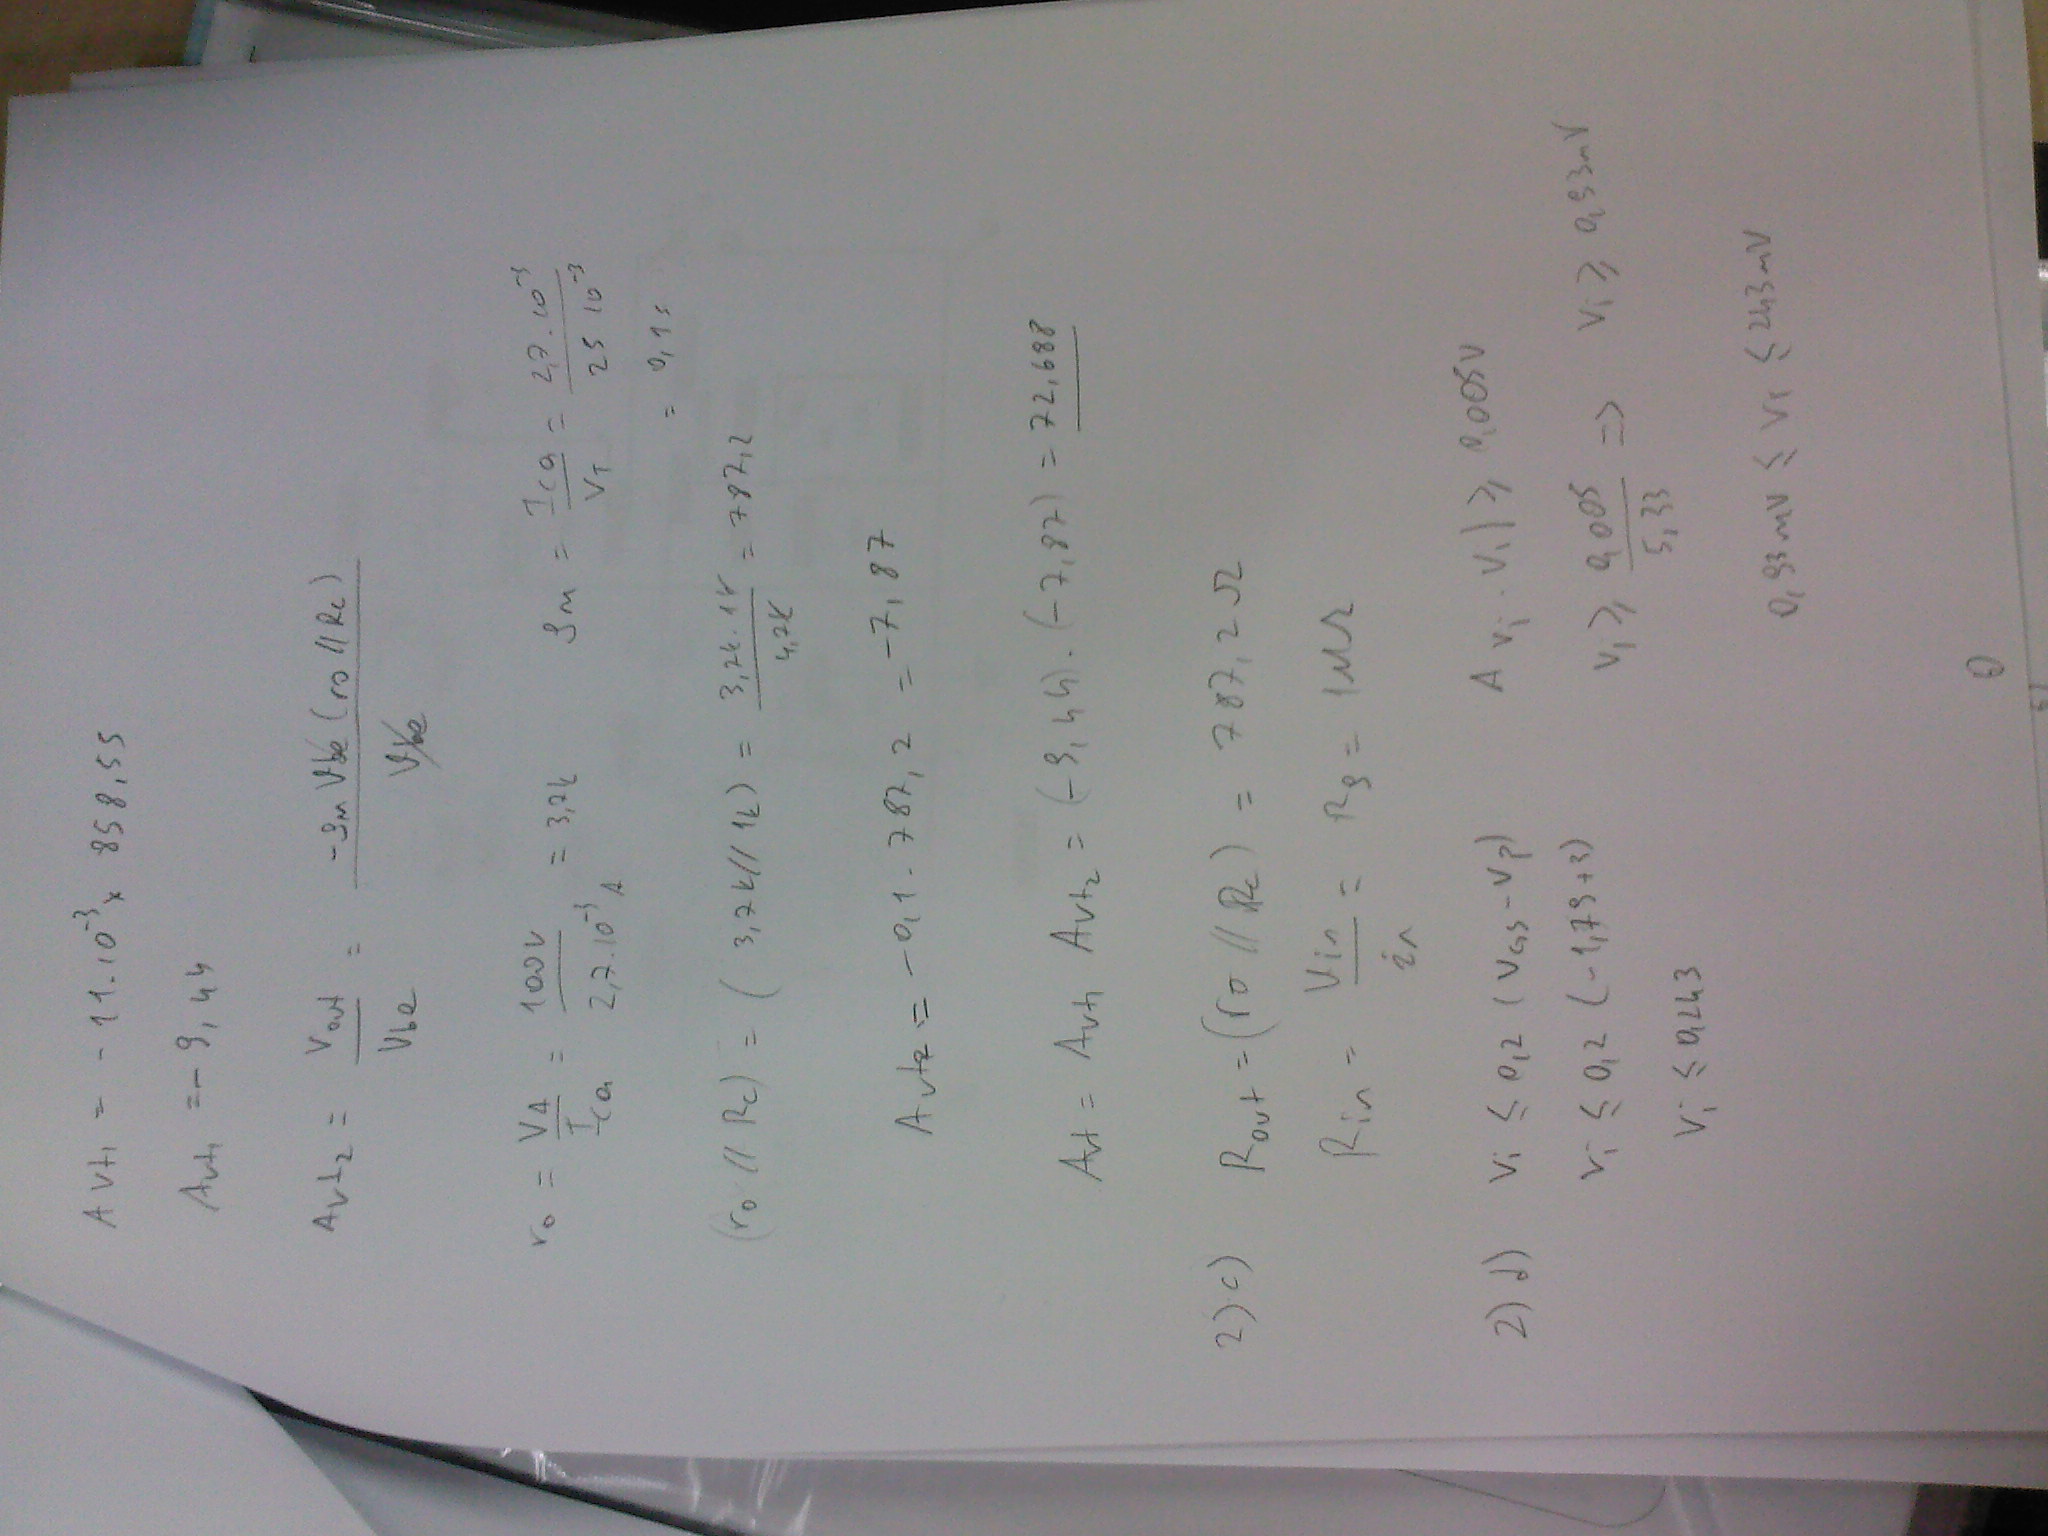 Avt1 = - 11.10⁻³ × 858,55
Avt1 = - 9,44
Avt2 = Vout / Vbe = -gm Vbe (ro // Rc) / Vbe
ro = VA / ICQ = 100V / 2,7.10⁻³ A = 3,7k gm = ICQ / VT = 2,7.10⁻³ / 25 10⁻³
= 0,1 s
(ro // Rc) = (3,7k // 1k) = 3,7k.1k / 4,7k = 787,2
Avt2 = -0,1.787,2 = -7,87
Avt = Avt1 Avt2 = (-9,44).(-7,87) = 72,688
2) c) Rout = (ro // Rc) = 787,2 Ω
Rin = Vin / in = Rg = 1MΩ
2) d) Vi ≤ 0,2 (VGS - VP) A Vi . Vi | ≥ 0,005V
Vi ≤ 0,2 (-1,79+3) Vi ≥ 0,005 / 5,33 => Vi ≥ 0,93mV
Vi ≤ 0,243
0,93mV ≤ Vi ≤ 243mV